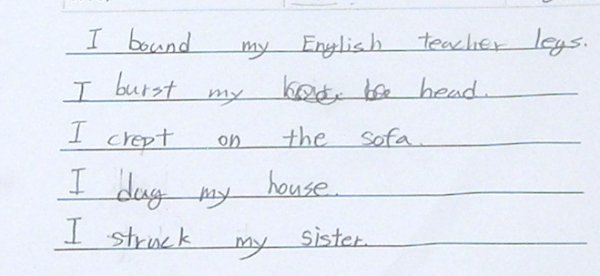 I bound my English teacher legs.
I burst my head.
I crept on the sofa.
I dug my house.
I struck my sister.